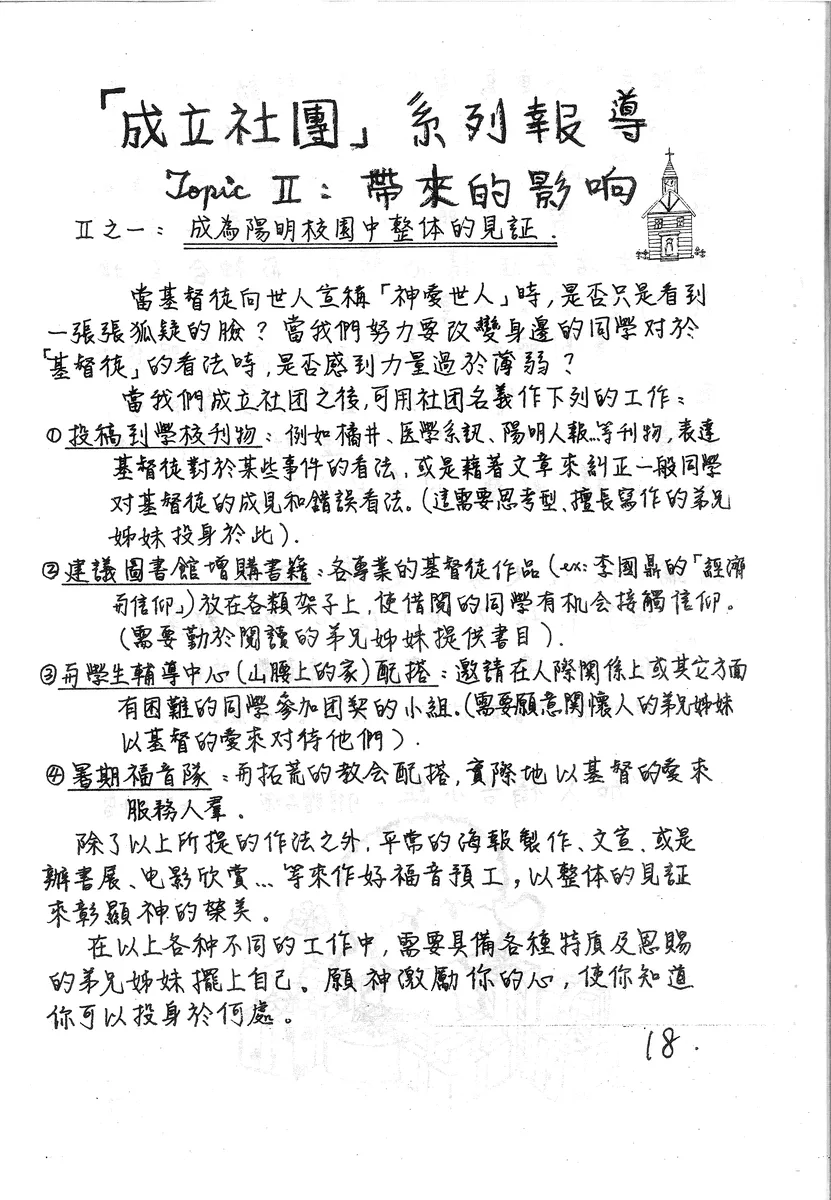 「成立社團」系列報導
Topic Ⅱ：帶來的影响
Ⅱ之一：成為陽明校園中整体的見証．
當基督徒向世人宣稱「神愛世人」時，是否只是看到
一張張狐疑的臉？當我們努力要改變身邊的同學对於
「基督徒」的看法時，是否感到力量過於薄弱？
當我們成立社团之後，可用社团名義作下列的工作：
①投稿到學校刊物：例如橘井、医學系訊、陽明人報…等刊物，表達
基督徒對於某些事件的看法，或是藉著文章來糾正一般同學
对基督徒的成見和錯誤看法。（這需要思考型、擅長寫作的弟兄
姊妹投身於此）．
②建議圖書館增購書籍：各專業的基督徒作品（ex：李國鼎的「經濟
與信仰」）放在各類架子上，使借閱的同學有机会接觸信仰。
（需要勤於閱讀的弟兄姊妹提供書目）．
③與學生輔導中心（山腰上的家）配搭：邀請在人際關係上或其它方面
有困難的同學參加团契的小組。（需要願意關懷人的弟兄姊妹
以基督的愛來对待他們）．
④暑期福音隊：與拓荒的教会配搭，實際地以基督的愛來
服務人羣．
除了以上所提的作法之外，平常的海報製作、文宣、或是
辦書展、电影欣賞…等來作好福音預工，以整体的見証
來彰顯神的榮美。
在以上各种不同的工作中，需要具備各種特质及恩賜
的弟兄姊妹擺上自己。願神激勵你的心，使你知道
你可以投身於何處。
18．